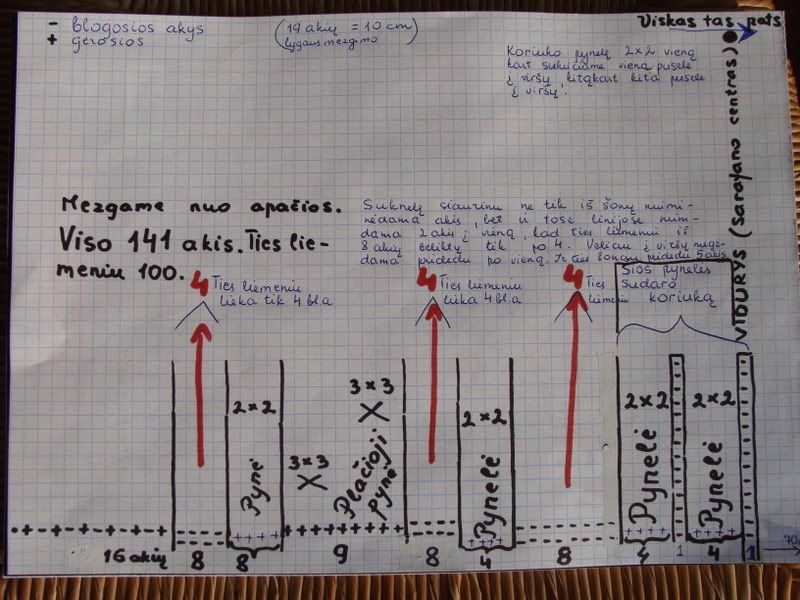 - blogosios akys
+ gerosios
(19 akių = 10 cm)
lygaus mezgimo
Viskas tas pats
Koriuko pynelę 2x2 vieną
kart sukučiame vieną pusele
į viršų, kitąkart kita pusele
į viršų.
VIDURYS (Sarafano centras)
Mezgame nuo apačios.
Viso 141 akis. Ties lie-
meniu 100.
Suknelę siaurinu ne tik iš šonų numi-
nėdama akis, bet ir tose linijose nim-
dama 2 akis į vieną, kad ties liemeniu iš
8 akių beliktų tik po 4. Vėliau į viršų megz-
dama pridedu po vieną. Ir ties šonais pridedu 5 akis
4 Ties liemeniu
lieka tik 4 bl.a
4 Ties liemeniu
lieka 4 bl.a
4 Ties
liemeniu
Šios pynelės
sudaro
koriuką
2x2
Pynė
3x3
X
3x3
X
Plačioji
pynė
2x2
Pynelė
2x2
Pynelė
2x2
Pynelė
16 akių 8 8 9 8 4 8 4 1 4 1 70